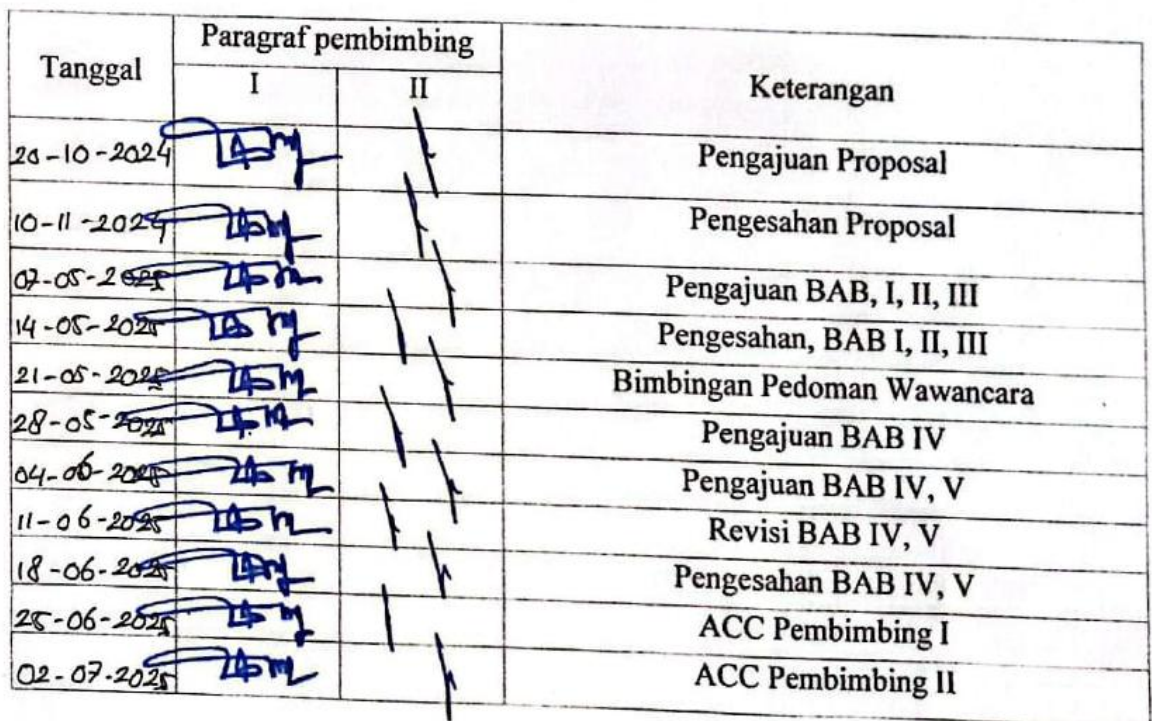 Tanggal Paragraf pembimbing Keterangan
I II
20-10-2024 Pengajuan Proposal
10-11-2024 Pengesahan Proposal
07-05-2025 Pengajuan BAB, I, II, III
14-05-2025 Pengesahan, BAB I, II, III
21-05-2025 Bimbingan Pedoman Wawancara
28-05-2025 Pengajuan BAB IV
04-06-2025 Pengajuan BAB IV, V
11-06-2025 Revisi BAB IV, V
18-06-2025 Pengesahan BAB IV, V
25-06-2025 ACC Pembimbing I
02-07-2025 ACC Pembimbing II